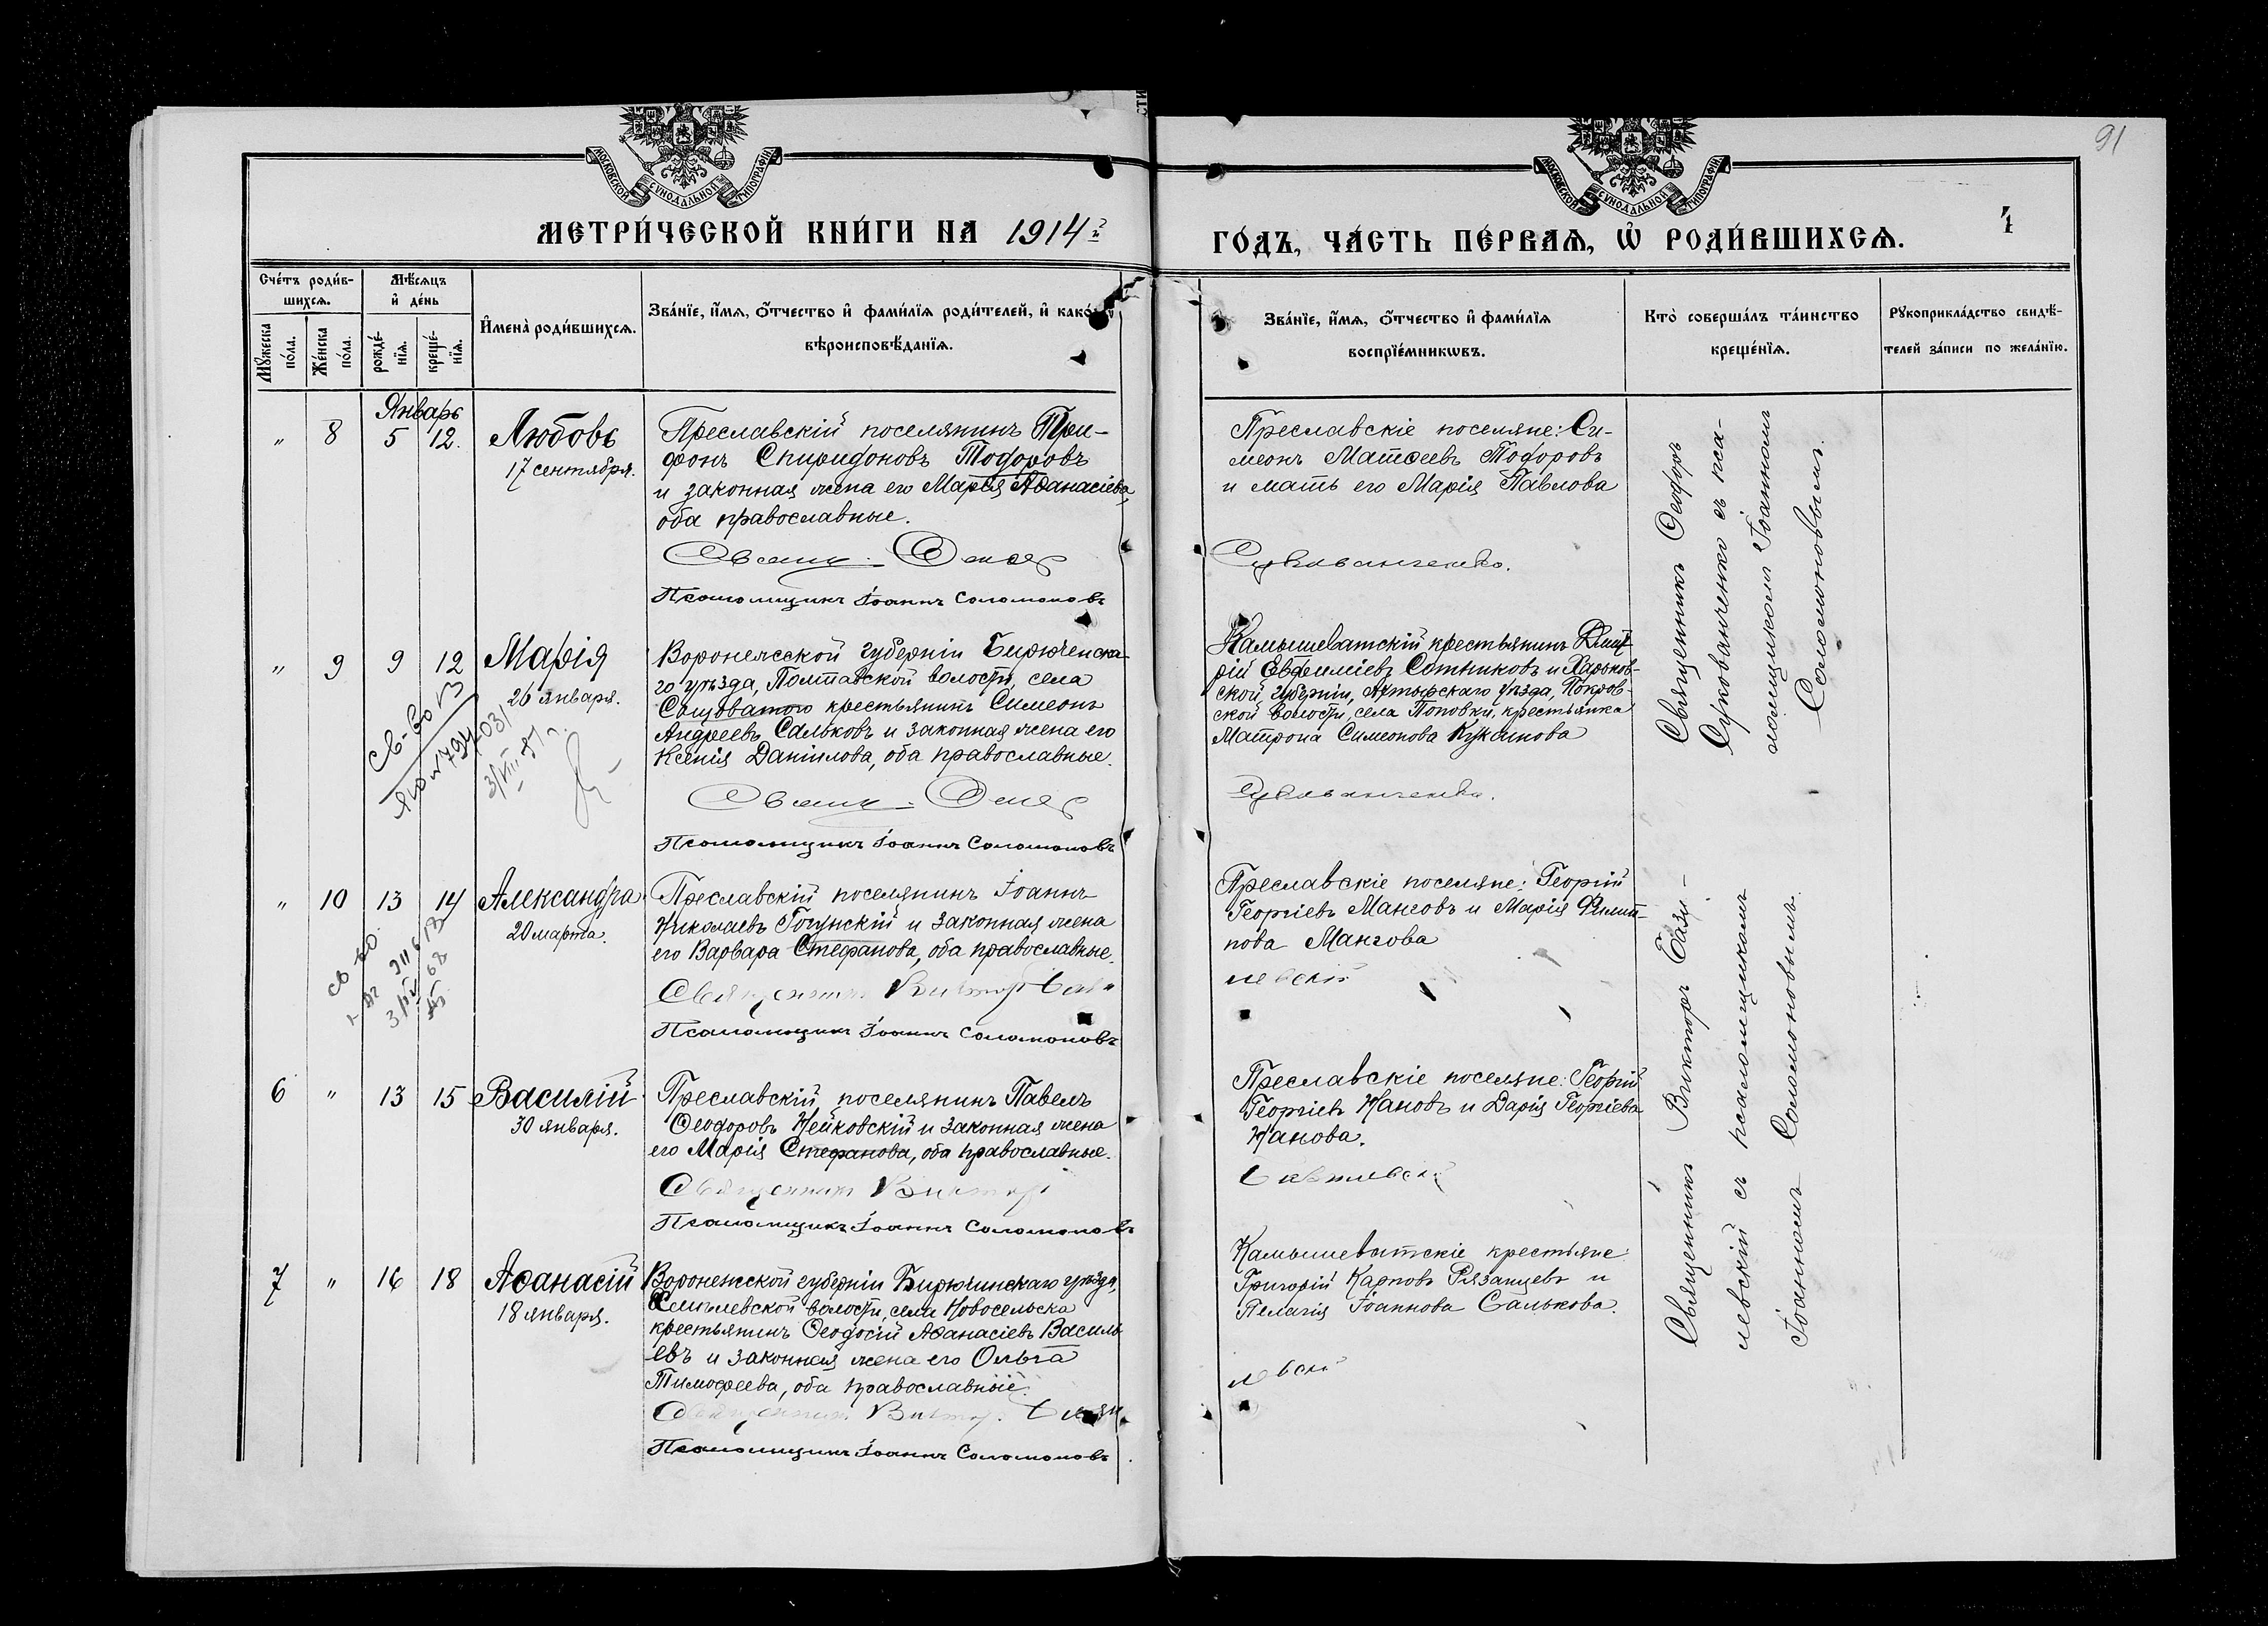 91
МОСКОВСКОЙ СѴНОДАЛЬНОЙ ТИПОГРАФІИ
МОСКОВСКОЙ СѴНОДАЛЬНОЙ ТИПОГРАФІИ
МЕТРИ́ЧЕСКОЙ КНИ́ГИ НА 1914 г.
ГО́ДЪ, ЧА́СТЬ ПЕ́РВАѦ, Ѡ РОДИ́ВШИХСѦ.
4
Сче́тъ роди́в-
шихсѧ.
Мѣ́сѧцъ
и҆ де́нь
Мꙋ́жеска по́ла.
Же́нска по́ла.
рожде́-
нїѧ.
креще́-
нїѧ.
И҆мена̀ роди́вшихсѧ.
Зва́нїе, и҆́мѧ, ѻ҆́тчество и҆ фами́лїѧ роди́телей, и҆ како́гѡ
вѣроисповѣ́данїѧ.
Зва́нїе, и҆́мѧ, ѻ҆́тчество и҆ фами́лїѧ
воспрїе́мникѡвъ.
Кто̀ соверша́лъ та́инство
креще́нїѧ.
Рꙋкоприкла́дство свидѣ́-
телей за́писи по жела́нїю.
Январь
" 8 5 12. Любовь
17 сентября.
Преславскій поселянинъ Три-
фонъ Спиридоновъ Тодоровъ
и законная жена его Марія Аѳанасіева,
оба православные.
Псаломщикъ Іоаннъ Соломоновъ
Преславскіе поселяне: Си-
меонъ Матѳеевъ Тодоровъ
и мать его Марія Павлова
Сукованченко.
Священникъ Ѳеодоръ
Сукованченко съ пса-
ломщикомъ Іоанномъ
Соломоновымъ.
" 9 9 12 Марія
26 января.
Воронежской губерніи Бирюченска-
го уѣзда, Полтавской волости, села
крестьянинъ Симеонъ
Андреевъ Сальковъ и законная жена его
Ксенія Даніилова, оба православные.
Псаломщикъ Іоаннъ Соломоновъ
Камышеватскій крестьянинъ Димит-
рій Евѳиміевъ Сотниковъ и Харьков-
ской губерніи, Ахтырскаго уѣзда, Покров-
ской волости, села Поповки, крестьянка
Матрона Симеонова
Сукованченко.
" 10 13 14 Александра
20 марта.
Преславскій поселянинъ Іоаннъ
Николаевъ и законная жена
его Варвара Стефанова, оба православные.
Священникъ Викторъ Бази
Псаломщикъ Іоаннъ Соломоновъ
Преславскіе поселяне: Георгій
Георгіевъ Манговъ и Марія Филип-
пова Мангова
левскій
Священникъ Викторъ Бази-
левскій съ псаломщикомъ
Іоанномъ Соломоновымъ.
6 " 13 15 Василій
30 января.
Преславскій поселянинъ Павелъ
Ѳеодоровъ Нейковскій и законная жена
его Марія Стефанова, оба православные.
Священникъ Викторъ
Псаломщикъ Іоаннъ Соломоновъ
Преславскіе поселяне: Георгій
Георгіевъ Нановъ и Дарія Георгіева
Нанова.
Базилевскій
7 " 16 18 Аѳанасій
18 января.
Воронежской губерніи Бирючинскаго уѣзда,
волости, села Новосельска
крестьянинъ Ѳеодосій Аѳанасіевъ Василь-
евъ и законная жена его Ольга
Тимофеева, оба православные.
Священникъ Викторъ Бази
Псаломщикъ Іоаннъ Соломоновъ
Камышеватскіе крестьяне:
Григорій Карповъ Рязанцевъ и
Пелагія Іоаннова Салькова.
левскій